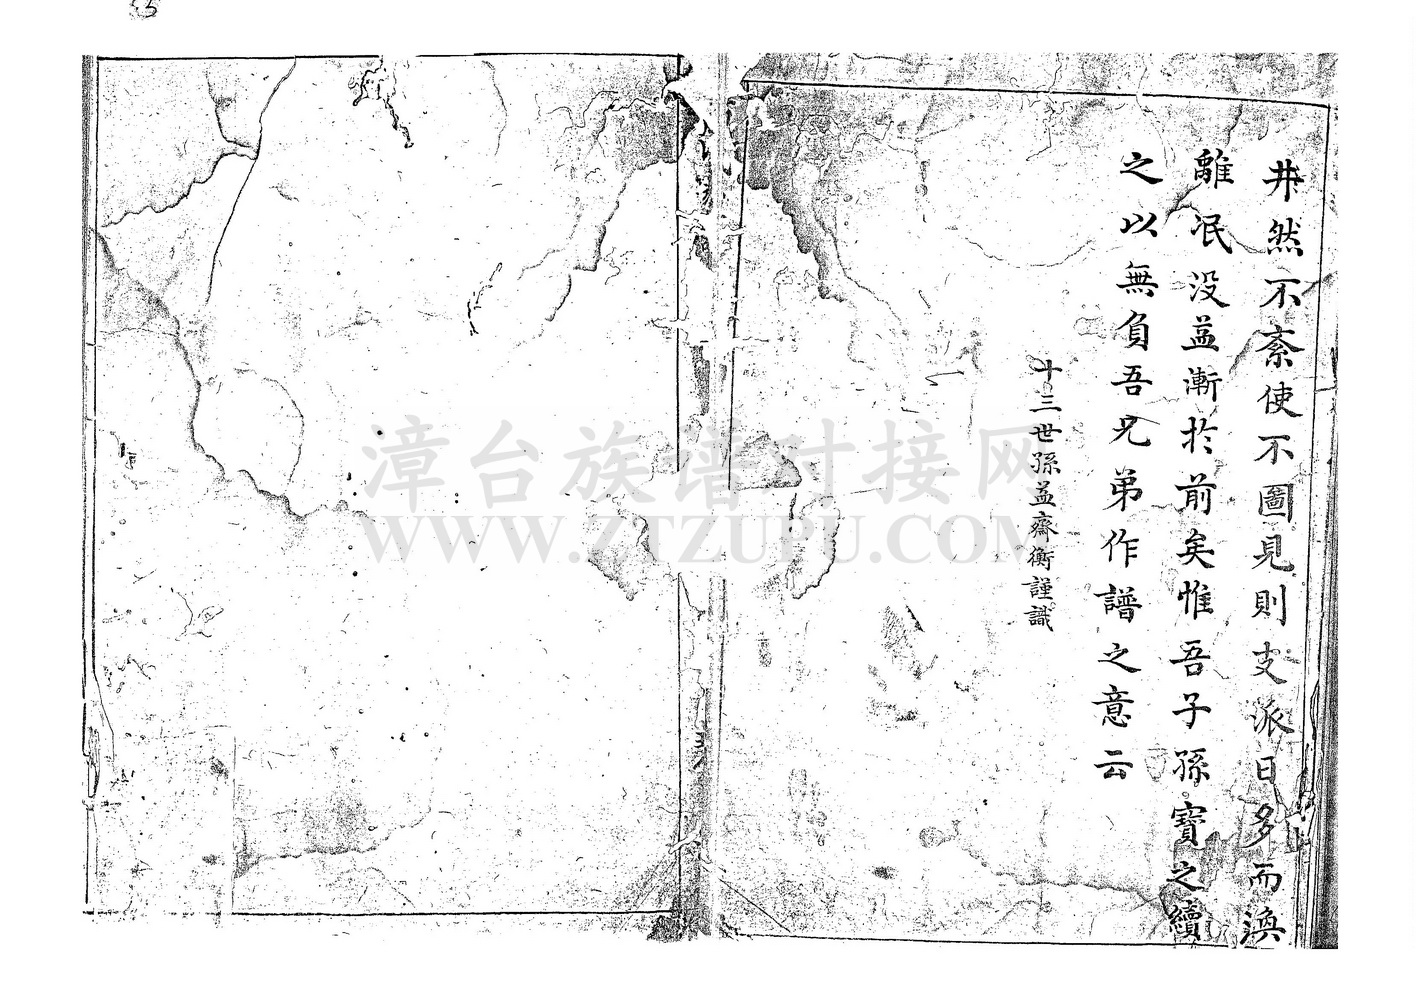 井然不紊使不圖見則支派日多而渙
離泯没益漸扵前矣惟吾子孫寶之續
之以無負吾兄弟作譜之意云
十三世孫益齋衡謹識
漳台族谱对接网
WWW.ZTZUPU.COM